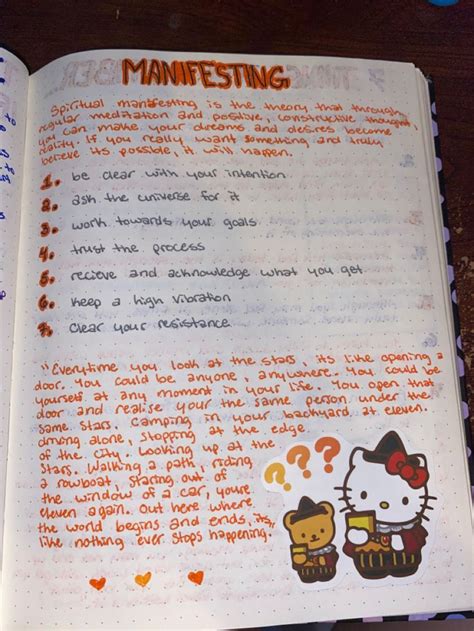 MANIFESTING
Spiritual manifesting is the theory that through
regular meditation and positive, constructive thought,
you can make your dreams and desires become
reality. If you really want something and truly
believe its possible, it will happen.
1. be clear with your intention
2. ask the universe for it
3. work towards your goals
4. trust the process
5. recieve and acknowledge what you get
6. keep a high vibration
7. clear your resistance
"Everytime you look at the stars, its like opening a
door. You could be anyone, anywhere. You could be
yourself at any moment in your life. You open that
door and realise your the same person under the
same stars. Camping in your backyard, at eleven.
driving alone, stopping at the edge
of the city. Looking up at the
stars. Walking a path, riding
a rowboat, staring out of
the window of a car, youre
eleven again. Out here where
the world begins and ends, its
like nothing ever stops happening.
???